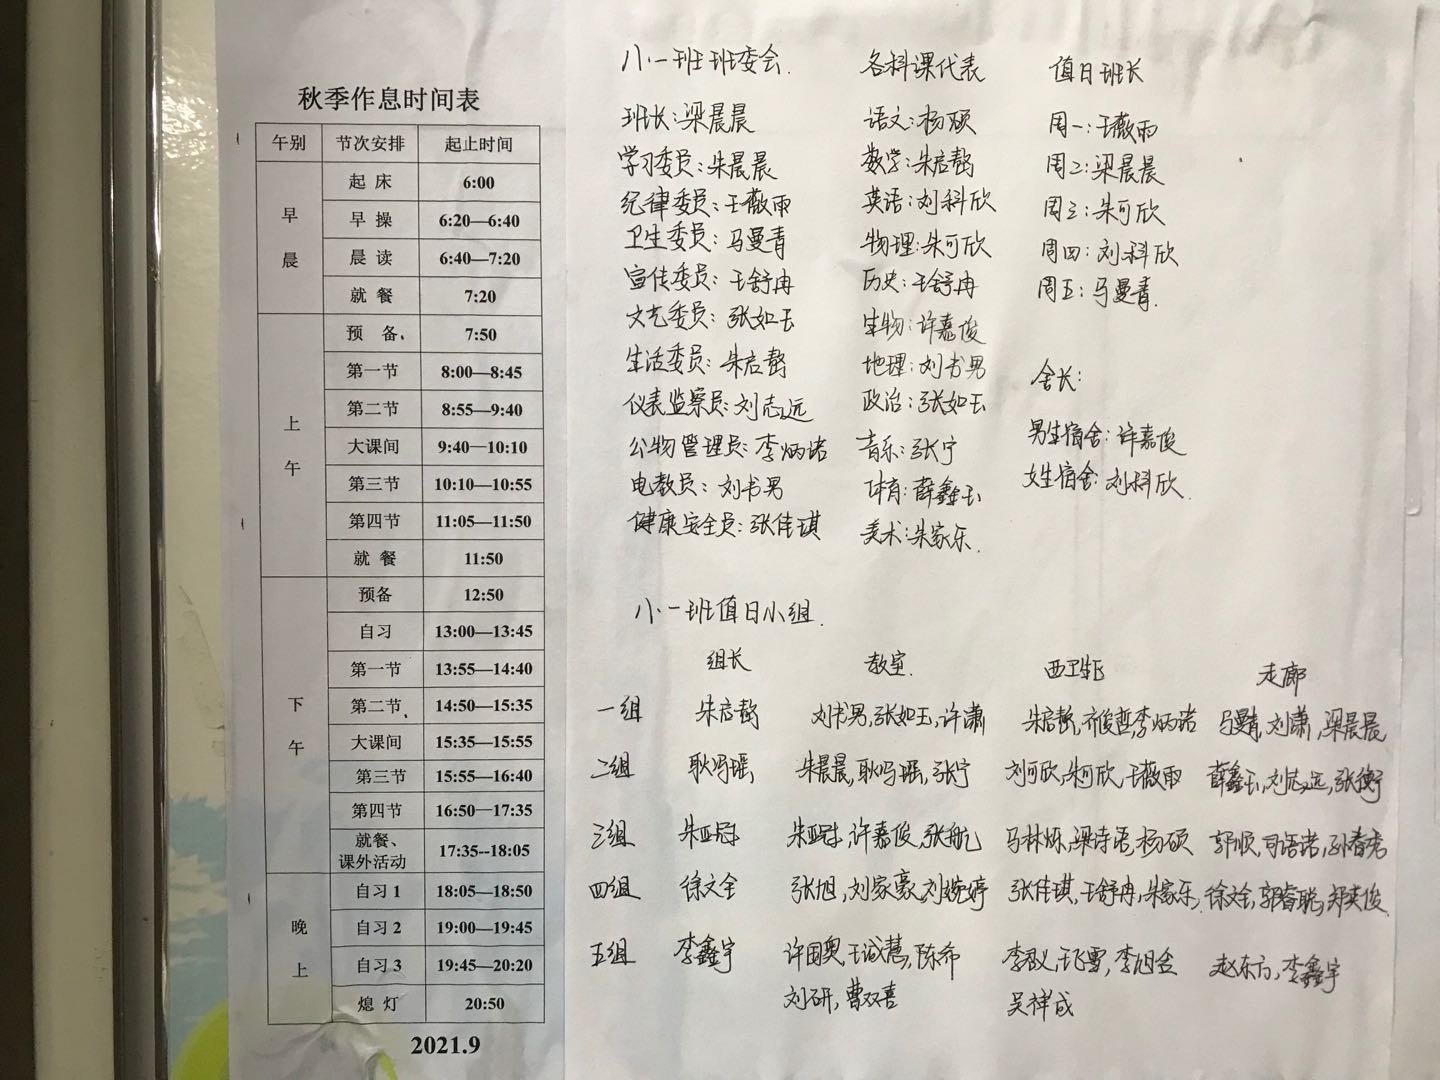 秋季作息时间表
午别 节次安排 起止时间
早晨
起床 6:00
早操 6:20—6:40
晨读 6:40—7:20
就餐 7:20
上午
预备 7:50
第一节 8:00—8:45
第二节 8:55—9:40
大课间 9:40—10:10
第三节 10:10—10:55
第四节 11:05—11:50
就餐 11:50
下午
预备 12:50
自习 13:00—13:45
第一节 13:55—14:40
第二节 14:50—15:35
大课间 15:35—15:55
第三节 15:55—16:40
第四节 16:50—17:35
就餐、
课外活动 17:35--18:05
晚上
自习1 18:05—18:50
自习2 19:00—19:45
自习3 19:45—20:20
熄灯 20:50
2021.9
八·一班班委会.
班长:梁晨晨
学习委员:朱晨晨
纪律委员:王薇雨
卫生委员:马曼青
宣传委员:王舒冉
文艺委员:张如玉
生活委员:朱启
仪表监察员:刘志远
公物管理员:李炳诺
电教员:刘书男
健康安全员:张佳琪
各科课代表
语文:杨硕
数学:朱启
英语:刘科欣
物理:朱可欣
历史:王舒冉
生物:许嘉俊
地理:刘书男
政治:张如玉
音乐:张宁
体育:薛鑫玉
美术:朱家乐.
值日班长
周一:王薇雨
周二:梁晨晨
周三:朱可欣
周四:刘科欣
周五:马曼青.
舍长:
男生宿舍:许嘉俊
女生宿舍:刘科欣.
八·一班值日小组.
组长 教室. 西卫生区 走廊
一组 朱启 刘书男,张如玉,许潇 朱启,齐俊哲,李炳诺 马曼青,刘潇,梁晨晨
二组 耿鸣瑶, 朱晨晨,耿鸣瑶,张宁 刘可欣,朱可欣,王薇雨 薛鑫玉,刘志远,张衡
三组 朱亚冠 朱亚冠,许嘉俊,张航 马林烁,梁诗语,杨硕 郭顺,司语诺,孙春尧
四组 徐文全 张旭,刘家豪,刘婉婷 张佳琪,王舒冉,朱家乐, 徐文全,郭睿聪,郑英俊.
五组 李鑫宇 许国奥,王诚慧,陈希 李叔义,王飞雪,李旭金 赵东方,李鑫宇
刘研,曹双喜 吴祥成